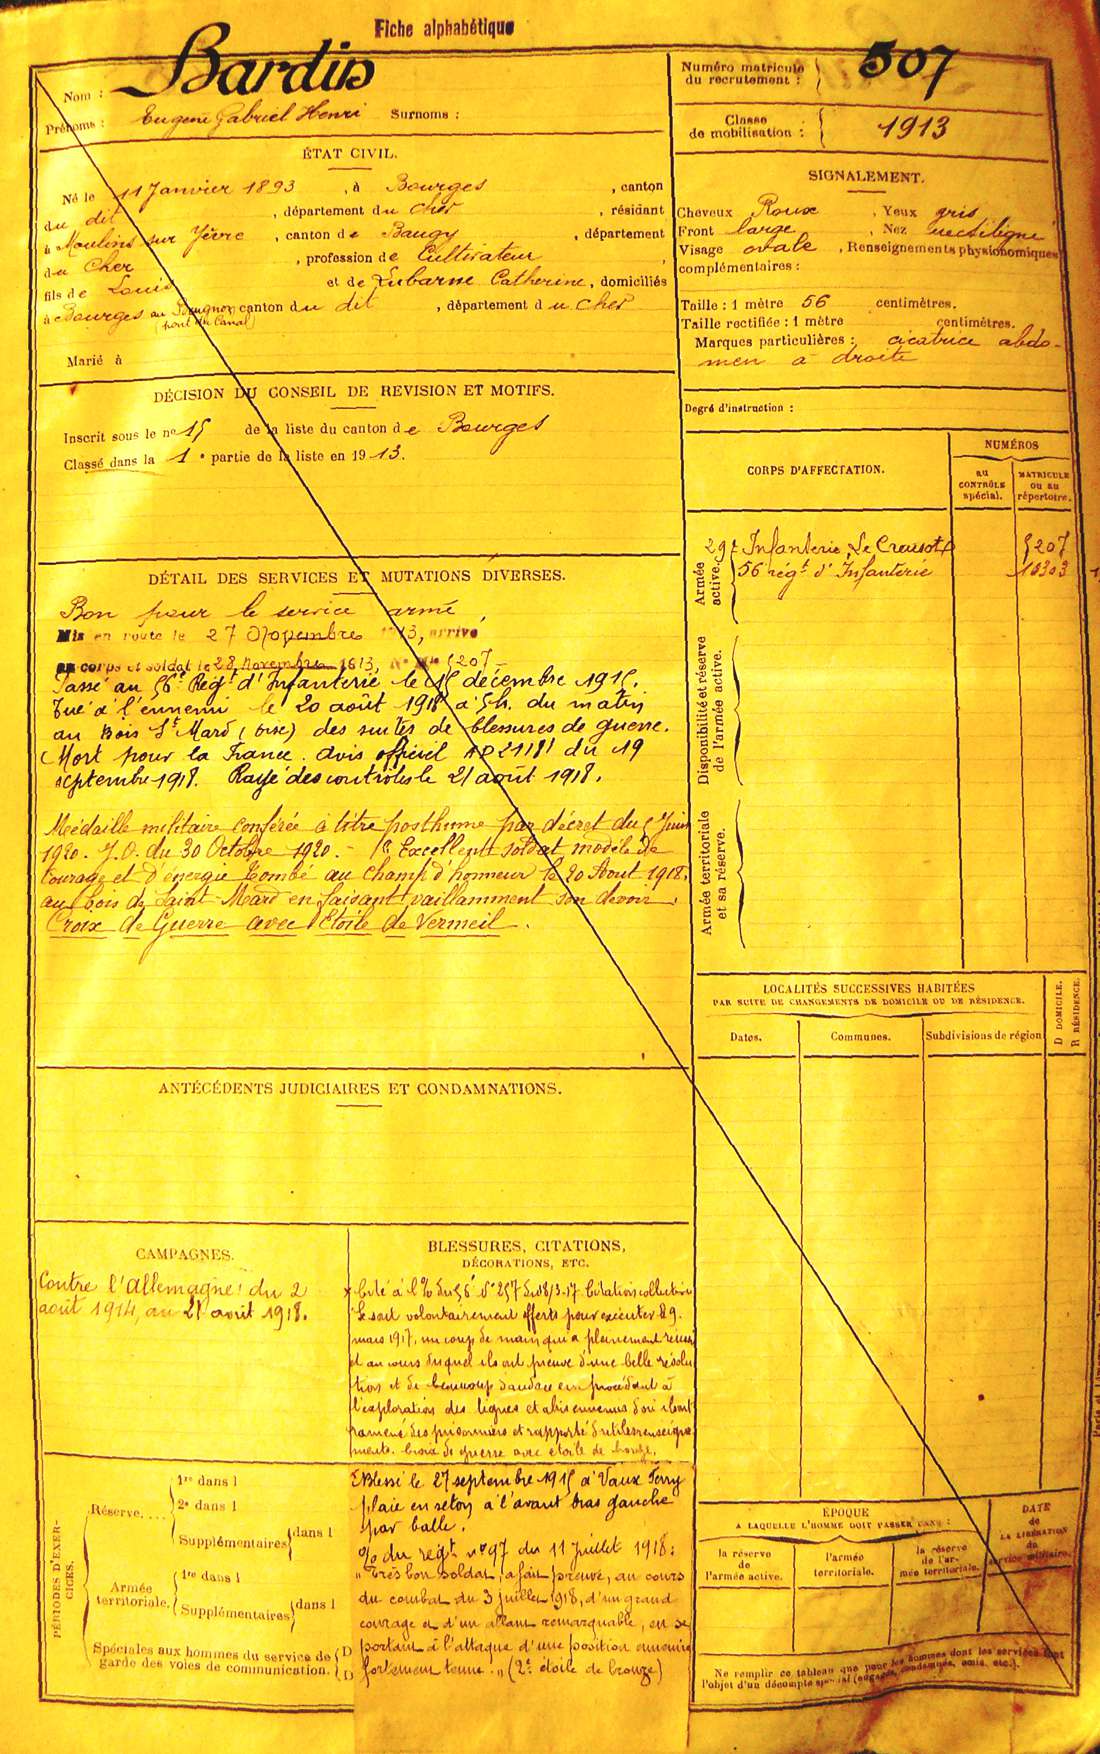 Fiche alphabétique
Nom : Bardin
Prénoms : Eugene Gabriel Henri Surnoms :
Numéro matricule
du recrutement : 507
Classe
de mobilisation : 1913
ÉTAT CIVIL.
Né le 11 Janvier 1893, à Bourges, canton
du dit, département du Cher, résidant
à Moulins sur Yèvre, canton de Baugy, département
du Cher, profession de Cultivateur,
fils de Louis et de Lubarne Catherine, domiciliés
à Bourges au canton du dit, département du Cher
(pont du Canal)
Marié à
SIGNALEMENT.
Cheveux Roux, Yeux gris
Front large, Nez rectiligne
Visage ovale, Renseignements physionomiques
complémentaires :
Taille : 1 mètre 56 centimètres.
Taille rectifiée : 1 mètre centimètres.
Marques particulières : cicatrice abdo-
men à droite
Degré d'instruction :
DÉCISION DU CONSEIL DE REVISION ET MOTIFS.
Inscrit sous le nº 15 de la liste du canton de Bourges
Classé dans la 1e partie de la liste en 1913.
CORPS D'AFFECTATION.
NUMÉROS
au
CONTRÔLE
spécial.
MATRICULE
ou au
répertoire.
Armée
active.
29e Infanterie Le Creusot 5207
56 régt d'Infanterie 10303
Disponibilité et réserve
de l'armée active.
Armée territoriale
et sa réserve.
DÉTAIL DES SERVICES ET MUTATIONS DIVERSES.
Bon pour le service armé
Mis en route le 27 Novembre 1913, arrivé
au corps et soldat le 28 Novembre 1913, Nº Mle 5207
Passé au 56e Régt d'Infanterie le 15 décembre 1915.
Tué à l'ennemi le 20 août 1918 à 5h. du matin
au Bois St Mard (Oise) des suites de blessures de guerre.
Mort pour la France. avis officiel AD 21181 du 19
septembre 1918. Rayé des contrôles le 21 août 1918.
Médaille militaire conférée à titre posthume par décret du 5 Juin
1920. J.O. du 30 Octobre 1920. - Excellent soldat modèle de
courage et d'énergie Tombé au champ d'honneur le 20 Aout 1918.
au bois de Saint-Mard en faisant vaillamment son devoir.
Croix de Guerre avec Etoile de Vermeil.
LOCALITÉS SUCCESSIVES HABITÉES
PAR SUITE DE CHANGEMENTS DE DOMICILE OU DE RÉSIDENCE.
Dates. Communes. Subdivisions de région
D DOMICILE.
R RÉSIDENCE.
ANTÉCÉDENTS JUDICIAIRES ET CONDAMNATIONS.
CAMPAGNES.
Contre l'Allemagne : du 2
août 1914, au 21 août 1918.
BLESSURES, CITATIONS,
DÉCORATIONS, ETC.
Cité à l'% du 56e nº 257 du 18/3-17 Citation collective
Se sont volontairement offerts pour exécuter le 9
mars 1917, un coup de main qui a pleinement réussi
et au cours duquel ils ont preuve d'une belle résolu
tion et de beaucoup d'audace en procédant à
l'exploration des lignes et abis ennemis d'où ils ont
ramené des prisonniers et rapporté d'utiles renseigne
ments. Croix de guerre avec étoile de bronze.
Blessé le 27 septembre 1915 à Vaux Ferry
plaie en seton à l'avant bras gauche
par balle.
% du régt nº 97 du 11 juillet 1918 :
"Très bon soldat, a fait preuve, au cours
du combat du 3 juillet 1918, d'un grand
courage et d'un allant remarquable, en se
portant à l'attaque d'une position ennemie
fortement tenue." (2e étoile de bronze)
PÉRIODES D'EXER-
CICES.
Réserve....
1re dans l
2e dans l
Supplémentaires dans l
Armée
territoriale.
1re dans l
Supplémentaires dans l
Spéciales aux hommes du service de
garde des voies de communication.
D
D
ÉPOQUE
A LAQUELLE L'HOMME DOIT PASSER DANS :
la réserve
de
l'armée active.
l'armée
territoriale.
la réserve
de l'ar-
mée territoriale.
DATE
de
LA LIBÉRATION
du
service militaire.
Ne remplir ce tableau que pour les hommes dont les services font
l'objet d'un décompte spécial (engagés, condamnés, omis, etc.).